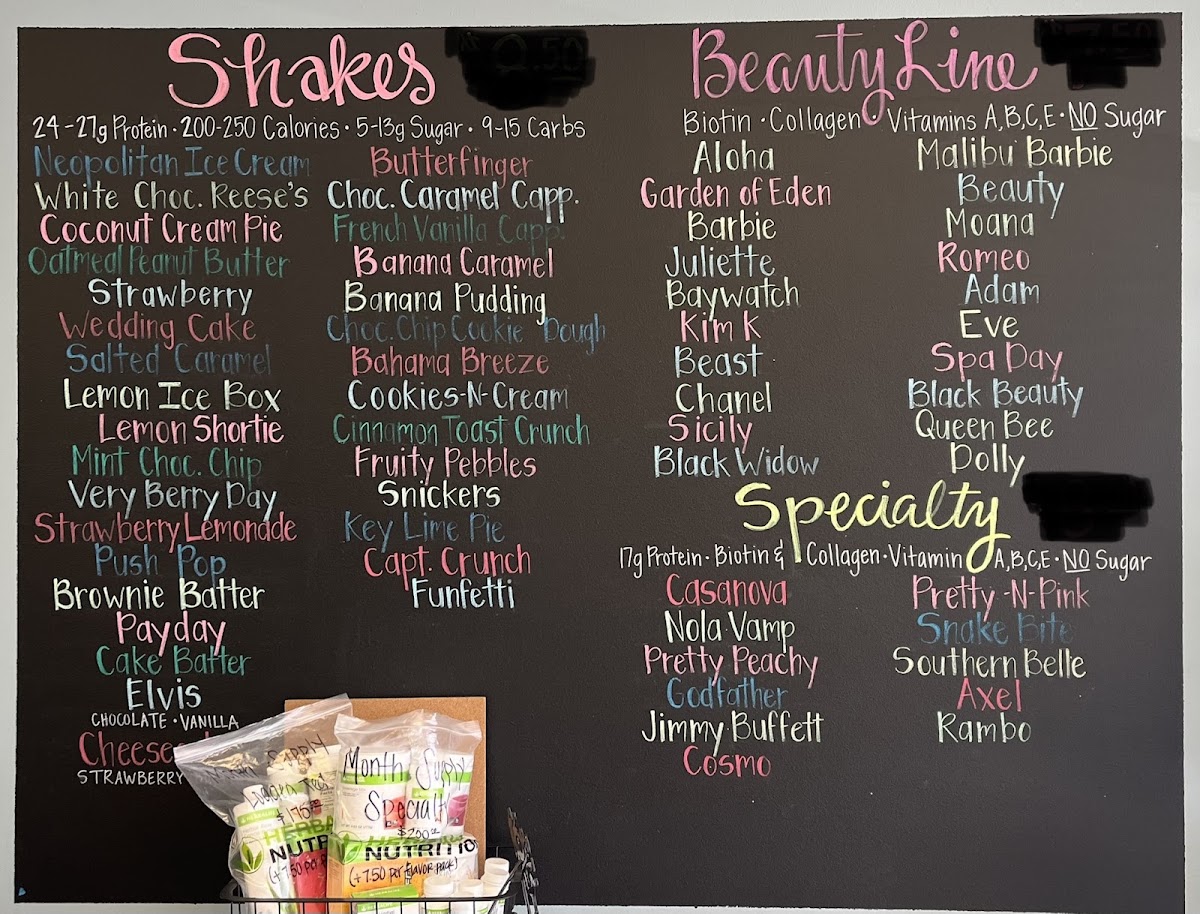 Shakes
24-27g Protein · 200-250 Calories · 5-13g Sugar · 9-15 Carbs
Neopolitan Ice Cream
White Choc. Reese's
Coconut Cream Pie
Oatmeal Peanut Butter
Strawberry
Wedding Cake
Salted Caramel
Lemon Ice Box
Lemon Shortie
Mint Choc. Chip
Very Berry Day
Strawberry Lemonade
Push Pop
Brownie Batter
Payday
Cake Batter
Elvis
CHOCOLATE · VANILLA
STRAWBERRY
Butterfinger
Choc. Caramel Capp.
French Vanilla Capp.
Banana Caramel
Banana Pudding
Choc. Chip Cookie Dough
Bahama Breeze
Cookies-N-Cream
Cinnamon Toast Crunch
Fruity Pebbles
Snickers
Key Lime Pie
Capt. Crunch
Funfetti
Beauty Line
Biotin · Collagen · Vitamins A,B,C,E · NO Sugar
Aloha
Garden of Eden
Barbie
Juliette
Baywatch
Kim K
Beast
Chanel
Sicily
Black Widow
Malibu Barbie
Beauty
Moana
Romeo
Adam
Eve
Spa Day
Black Beauty
Queen Bee
Dolly
Specialty
17g Protein · Biotin & Collagen · Vitamin A,B,C,E · NO Sugar
Casanova
Nola Vamp
Pretty Peachy
Godfather
Jimmy Buffett
Cosmo
Pretty-N-Pink
Snake Bite
Southern Belle
Axel
Rambo
Supply
$175
NUTRI
(+7.50 per
Month Supply
Specialty
$200
NUTRITIO
(+7.50 per flavor pack)